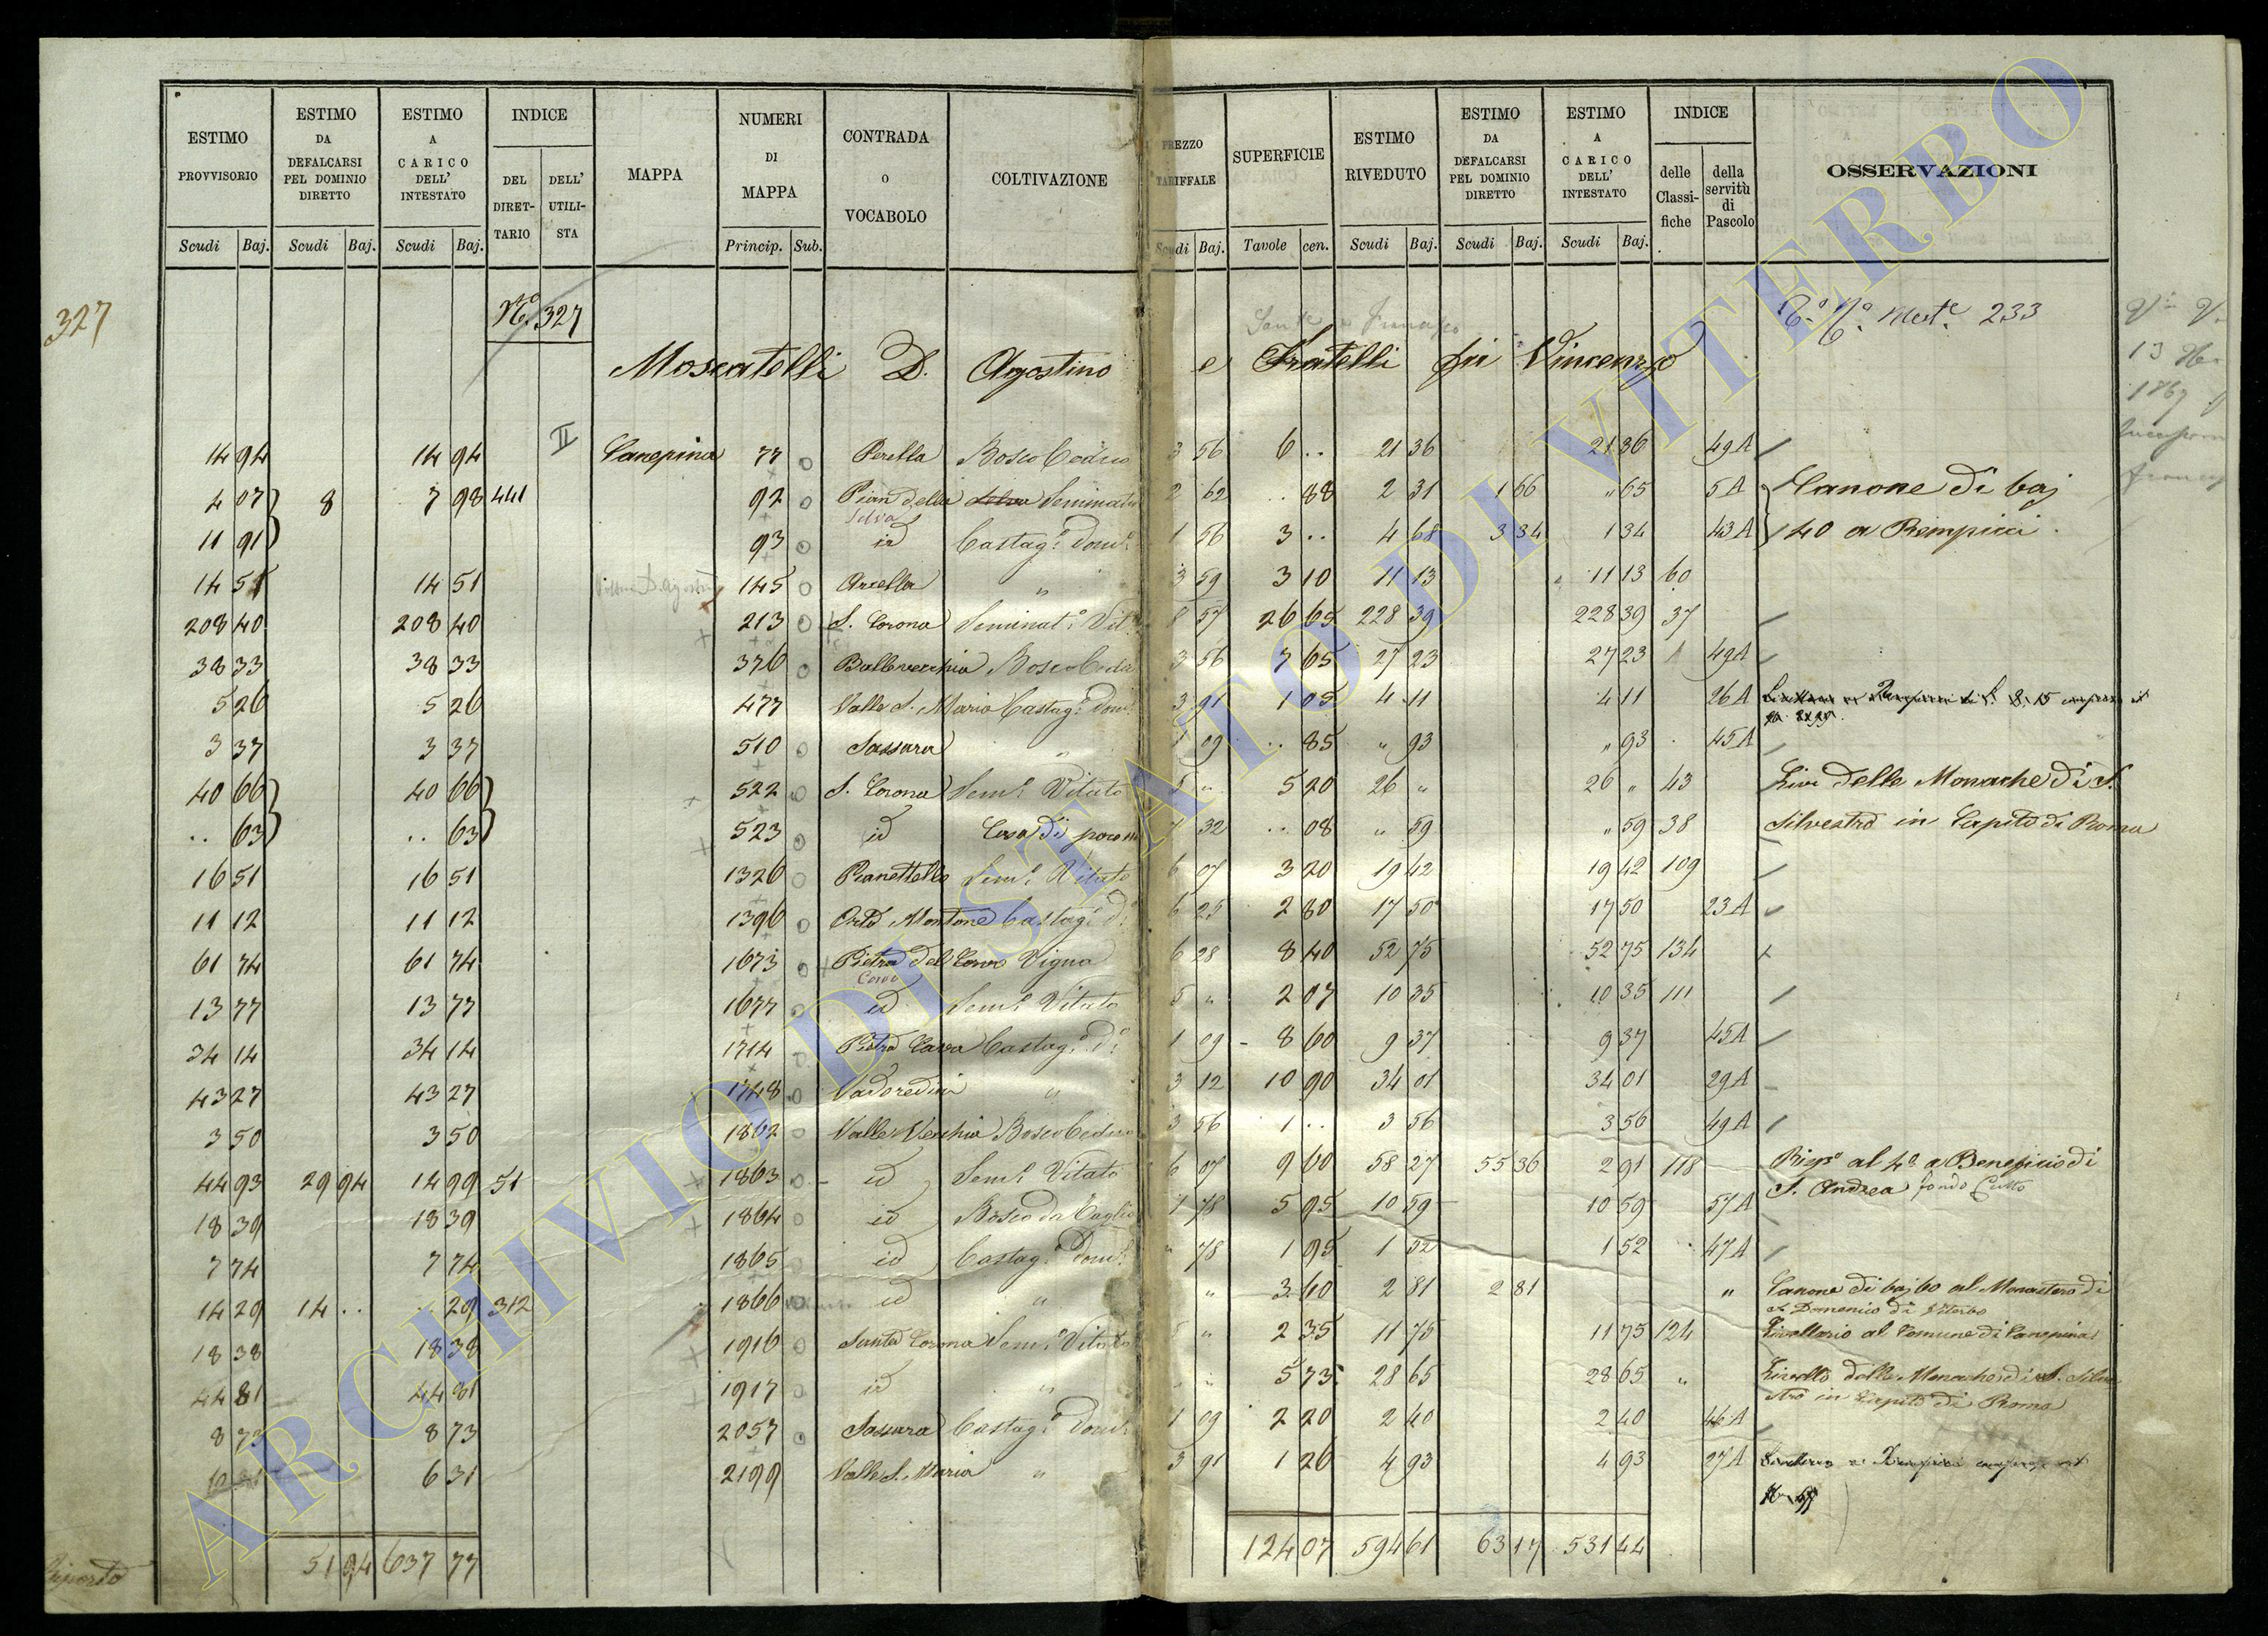 ESTIMO PROVVISORIO Scudi Baj.
ESTIMO DA DEFALCARSI PEL DOMINIO DIRETTO Scudi Baj.
ESTIMO A CARICO DELL' INTESTATO Scudi Baj.
INDICE DEL DIRET-TARIO DELL' UTILI-STA
MAPPA
NUMERI DI MAPPA Princip. Sub.
CONTRADA O VOCABOLO
COLTIVAZIONE
PREZZO TARIFFALE Scudi Baj.
SUPERFICIE Tavole cen.
ESTIMO RIVEDUTO Scudi Baj.
ESTIMO DA DEFALCARSI PEL DOMINIO DIRETTO Scudi Baj.
ESTIMO A CARICO DELL' INTESTATO Scudi Baj.
INDICE delle Classi-fiche della servitù di Pascolo
OSSERVAZIONI
327
Nº 327
233
Moscatelli D. Agostino e Fratelli fu Vincenzo
14 94 14 94 II Canepina 77 Perella Bosco Ceduo 3 56 6 .. 21 36 21 36 49A
4 07 8 7 98 441 92 Pian della Selva Seminato 2 62 .. 88 2 31 1 66 " 65 5A Canone di baj
11 91 93 id Castag.º Dom.º 1 56 3 .. 4 68 3 34 1 34 43A 140 a Rempicci
14 51 14 51 145 Arcella " 3 59 3 10 11 13 11 13 60
208 40 208 40 213 S. Corona Seminat.º Vit.º 8 57 26 65 228 39 228 39 37
38 33 38 33 376 Vallevecchia Bosco Ceduo 3 56 7 65 27 23 27 23 49A
5 26 5 26 477 Valle S. Maria Castag.º Dom.º 3 91 1 05 4 11 4 11 26A
3 37 3 37 510 Sassara " 1 09 .. 85 " 93 " 93 45A
40 66 40 66 522 S. Corona Sem.º Vitato 5 " 5 20 26 " 26 " 43 Livº delle Monache di S.
.. 63 .. 63 523 id Casa di 7 32 .. 08 " 59 " 59 38 Silvestro in Capite di Roma
16 51 16 51 1326 Pianettelle Sem.º Vitato 6 07 3 20 19 42 19 42 109
11 12 11 12 1396 Orto Montone Castag.º D.º 6 25 2 80 17 50 17 50 23A
61 74 61 74 1673 Pietra del Corvo Vigna 6 28 8 40 52 75 52 75 134
13 77 13 77 1677 id Sem.º Vitato 5 " 2 07 10 35 10 35 111
34 14 34 14 1714 Pietra Cava Castag.º D.º 1 09 8 60 9 37 9 37 45A
43 27 43 27 1748 Vadoredini " 3 12 10 90 34 01 34 01 29A
3 50 3 50 1862 Valle Vecchia Bosco Ceduo 3 56 1 .. 3 56 3 56 49A
44 93 29 94 14 99 51 1863 id Sem.º Vitato 6 07 9 60 58 27 55 36 2 91 118 Risp.º al 4º a Beneficio di
S. Andrea
18 39 18 39 1864 id Bosco da Taglio 1 78 5 95 10 59 10 59 57A
7 74 7 74 1865 id Castag.º Dom.º " 78 1 95 1 52 1 52 47A
14 29 14 .. .. 29 312 1866 id " " 3 60 2 81 2 81 " Canone di baj 60 al Monastero di
S. Domenico di Viterbo
18 38 18 38 1916 Santa Corona Sem.º Vitato 5 " 2 35 11 75 11 75 124 Livellario al Comune di Canepina
44 81 44 81 1917 id " " " 5 73 28 65 28 65 " Livello delle Monache di S. Silve
stro in Capite di Roma
8 73 8 73 2057 Sassara Castag.º Dom.º 1 09 2 20 2 40 2 40 46A
6 31 2199 Valle S. Maria " 3 91 1 26 4 93 4 93 27A
Riporto 51 94 637 77 124 07 594 61 63 17 531 44
ARCHIVIO DI STATO DI VITERBO